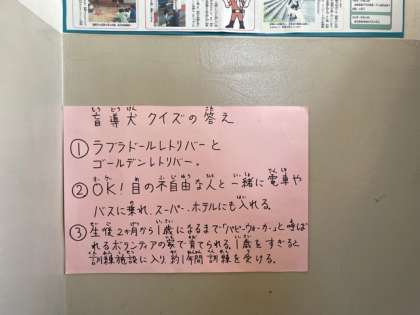 盲導犬クイズの答え
① ラブラドールレトリバーと
ゴールデンレトリバー。
② OK！目の不自由な人と一緒に電車や
バスに乗れ、スーパー、ホテルにも入れる。
③ 生後2ヶ月から1歳になるまで「パピーウォーカー」と呼ば
れるボランティアの家で育てられる。1歳をすぎると
訓練施設に入り、約1年間訓練を受ける。